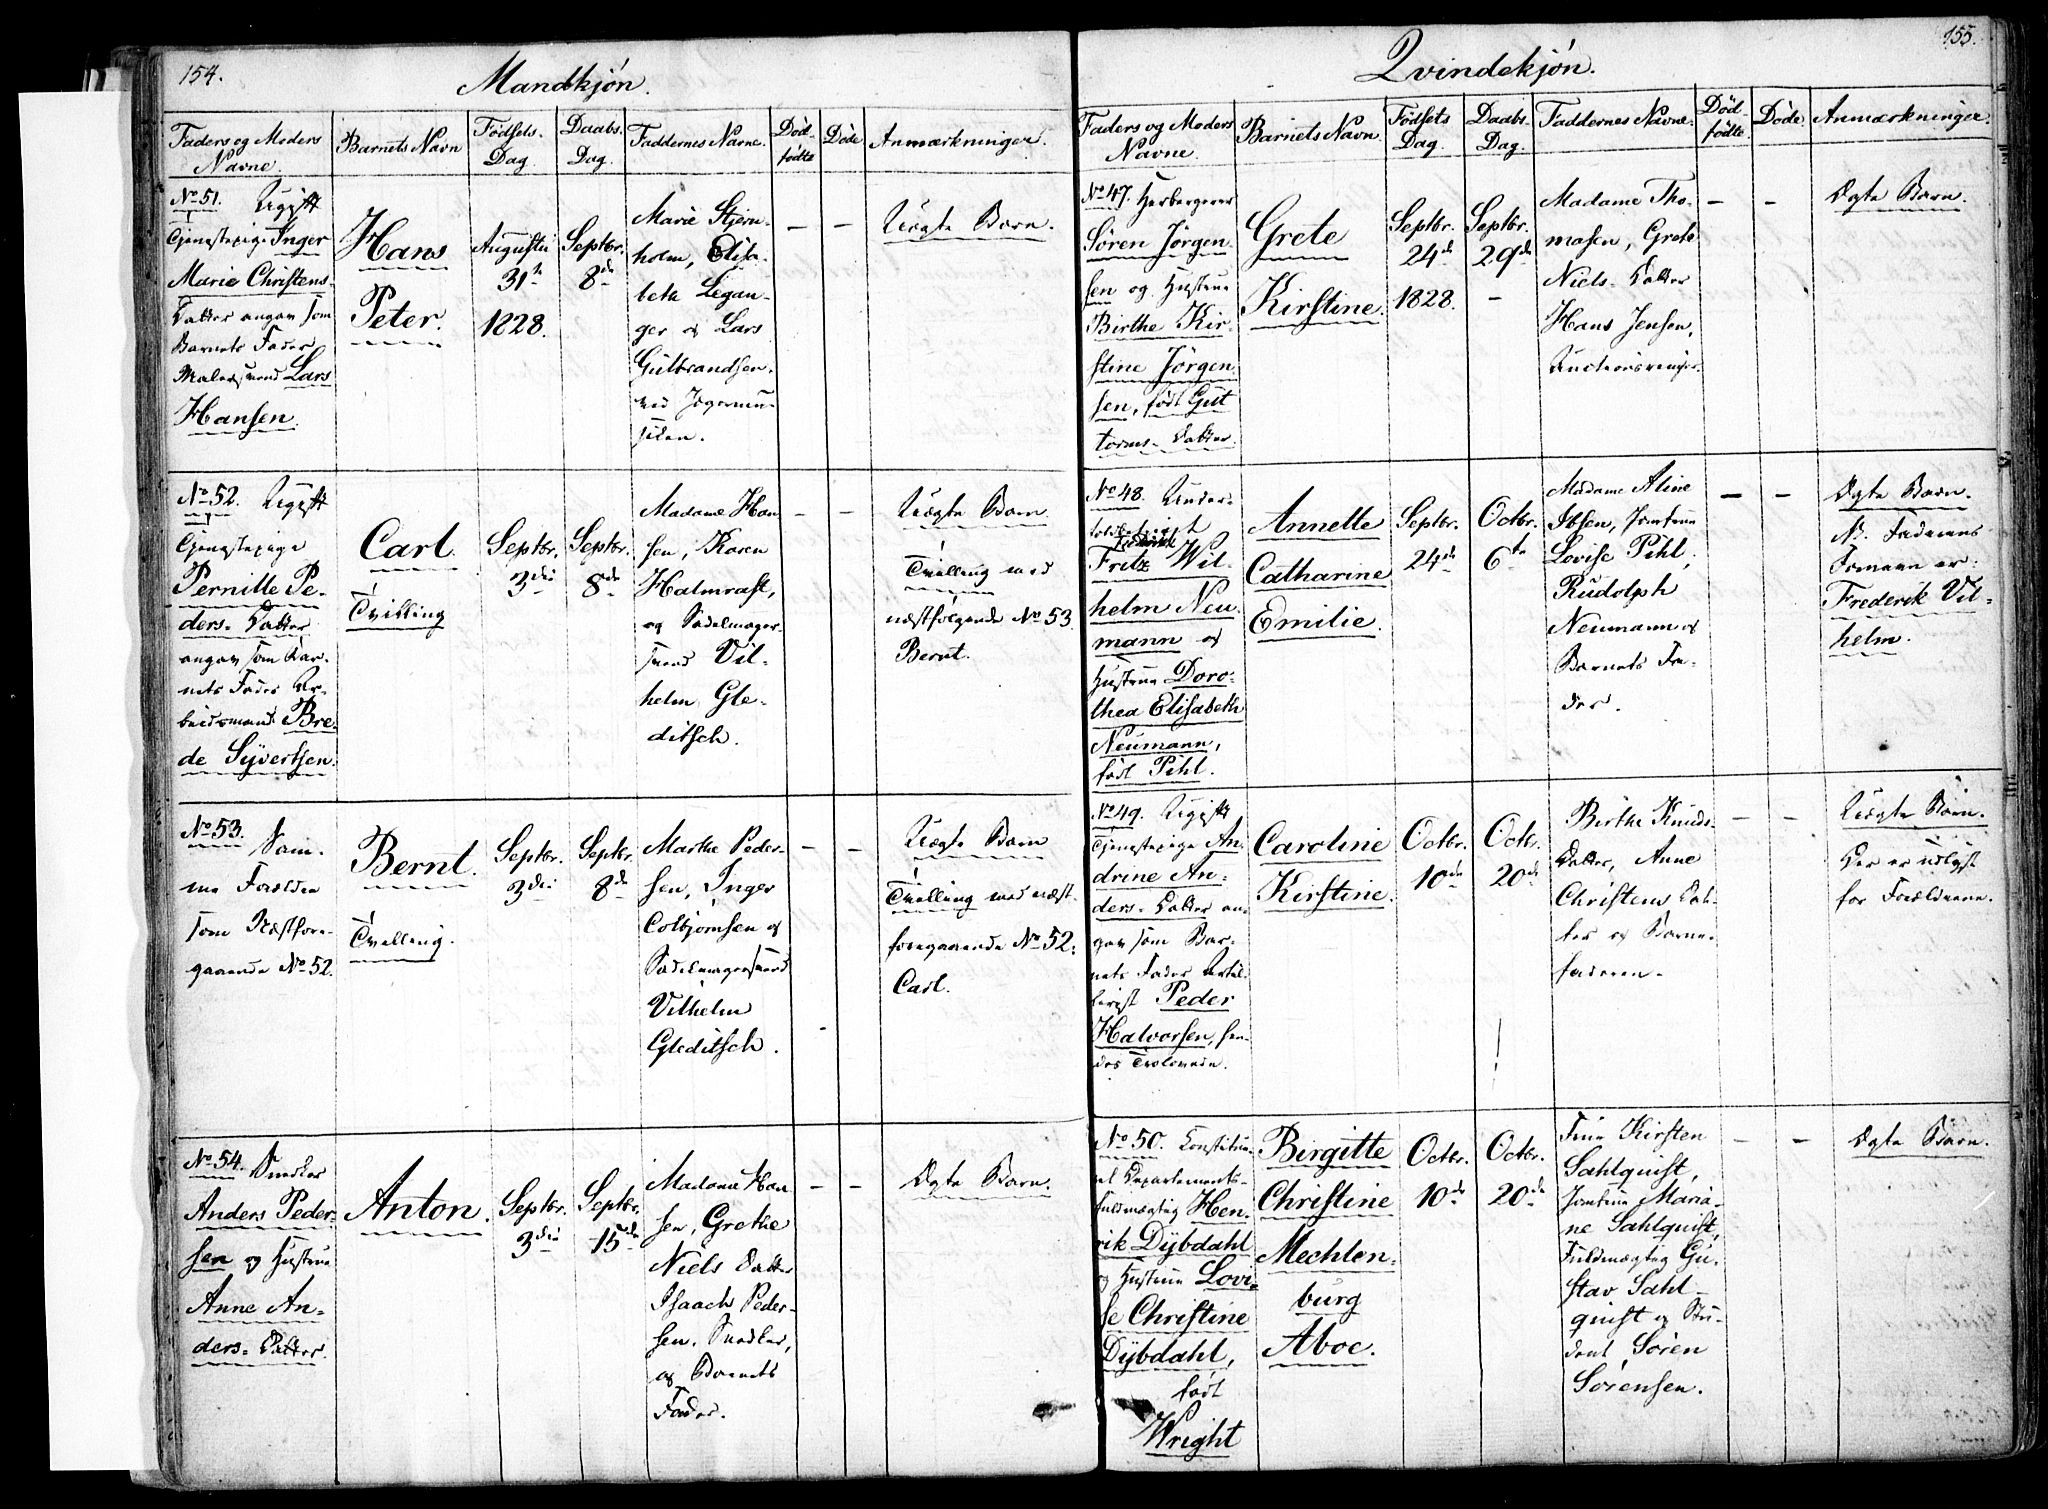 154.
Mandkjön.
Faders og Moders
Navne.
Barnets Navn
Födsels-
Dag.
Daabs-
Dag.
Faddernes Navne.
Död-
födte
Döde
Anmærkninger.
No 51. Ugift
Tjenestepige Inger
Marie Christens-
Datter angav som
Barnets Fader
Malersvend Lars
Hansen.
Hans
Peter.
Augusti
31te
1828.
Septbr.
8de
Marie Stjern-
holm, Elisa-
beth Legan-
ger og Lars
Gulbrandsen.
–
–
Uægte Barn.
No 52. Ugift
Tjenestepige
Pernille Pe-
ders- Datter
angav som Bar-
nets Fader Ar-
beidsmand Bre-
de Syvertsen.
Carl.
Tvilling
Septbr.
3die
Septbr.
8de
Madame Han
sen, Karen
Halmrast,
og Sadelmager-
svend Vil-
helm Gle-
ditsch.
–
–
Uægte Barn.
Tvelling med
næstfølgende No 53
Bernt.
No 53. Sam-
me Forældre
som Næstfore-
gaaende No 52.
Bernt.
Tvelling.
Septbr.
3die
Septbr.
8de
Marthe Peder-
sen, Inger
Colbjørnsen og
Sadelmagersvend
Vilhelm
Gleditsch.
–
–
Uægte Barn
Tvelling med næst-
foregaaende No 52.
Carl.
No 54. Snedker
Anders Peder-
sen og Hustrue
Anne An-
ders- Datter.
Anton.
Septbr.
3die
Septbr.
15de
Madame Han
sen, Grethe
Niels Datter
Isaach Peder-
sen, Snedker,
og Barnets
Fader.
–
–
Ægte Barn.
155.
Qvindekjön.
Faders og Moders
Navne.
Barnets Navn.
Födsels
Dag.
Daabs-
Dag.
Faddernes Navne.
Död-
födte.
Döde.
Anmærkninger.
No 47. Herbergerer
Sören Jörgen-
sen og Hustrue
Birthe Kir-
stine Jörgen-
sen, født Gut
torms- Datter.
Grete
Kirstine.
Septbr.
24de
1828.
Septbr.
29de
–
Madame Tho-
masen, Grete
Niels- Datter
Hans Jensen,
–
–
Ægte Barn.
No 48. Under-
Fritz Wil-
helm Neu-
mann og
Hustrue Doro-
thea Elisabeth
Neumann,
født Pihl.
Annette
Catharine
Emilie.
Septbr.
24de
Octbr.
6te
Madame Aline
Ibsen, Jomfrue
Lovise Pihl,
Rudolph
Neumann og
Barnets Fa-
der.
–
–
Ægte Barn.
N. Faderens
Fornavn er:
Frederik Vil-
helm.
No 49. Ugift
Tjenestepige An-
drine An-
ders- Datter an-
gav som Bar-
nets Fader Artil-
lerist Peder
Halvorsen,
Caroline
Kirstine.
Octbr.
10de
Octbr.
20de
Birthe Knuds-
Datter, Anne
Christens Dat-
ter og Barne-
faderen.
–
–
Uægte Barn.
Der er udlyst
for Forældrene.
No 50. Constitue-
ret Departements-
fuldmægtig Hen-
rik Dybdahl
og Hustrue Lovi-
se Christine
Dybdahl,
født
Wright
Birgitte
Christine
Mechlen-
burg
Aboe.
Octbr.
10de
Octbr.
20de
Frue Kirsten
Sahlquist,
Jomfrue Maria-
ne Sahlquist,
Fuldmægtig Gu-
stav Sahl-
quist og Stu-
dent Sören
Sörensen.
–
–
Ægte Barn.